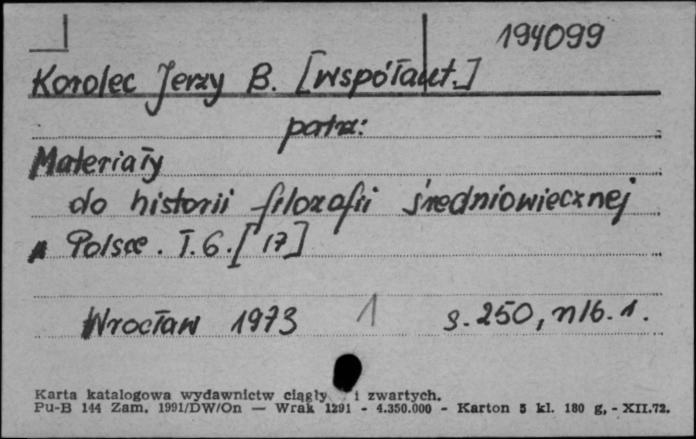 194099
Korolec Jerzy B. [współaut.]
patrz:
Materiały
do historii filozofii średniowiecznej
w Polsce. T. 6. [17]
Wrocław 1973 1 s. 250, nlb. 1.
Karta katalogowa wydawnictw ciągły i zwartych.
Pu-B 144 Zam. 1991/DW/On — Wrak 1291 - 4.350.000 - Karton 5 kl. 180 g, - XII.72.